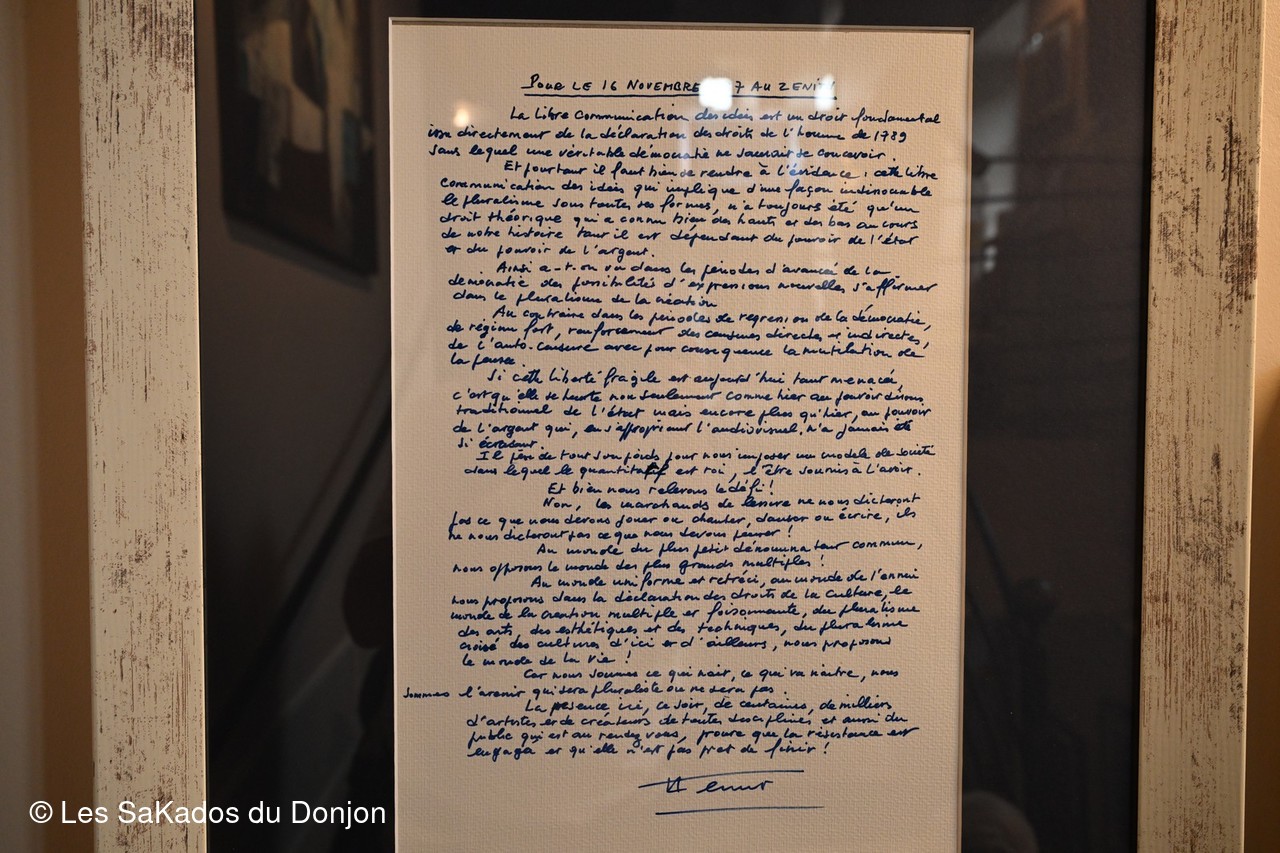 POUR LE 16 NOVEMBRE 7 AU ZENITH
La Libre communication des idées est un droit fondamental
issu directement de la déclaration des droits de l'homme de 1789
sans lequel une véritable démocratie ne saurait se concevoir.
Et pourtant il faut bien se rendre à l'évidence : cette libre
communication des idées qui implique d'une façon indissociable
le pluralisme sous toutes ses formes, n'a toujours été qu'un
droit théorique qui a connu bien des hauts et des bas au cours
de notre histoire tant il est dépendant du pouvoir de l'état
et du pouvoir de l'argent.
Ainsi a-t-on vu dans les périodes d'avancée de la
démocratie des possibilités d'expressions nouvelles s'affirmer
dans le pluralisme de la création
Au contraire dans les périodes de regression de la démocratie,
de régime fort, renforcement des censures directes et indirectes,
de l'auto-censure avec pour conséquence la mutilation de
la pensée.
Si cette liberté fragile est aujourd'hui tant menacée,
c'est qu'elle se heurte non seulement comme hier au pouvoir disons
traditionnel de l'état mais encore plus qu'hier, au pouvoir
de l'argent qui, en s'appropriant l'audiovisuel, n'a jamais été
si écrasant.
Il pèse de tout son poids pour nous imposer un modèle de société
dans lequel le quantitatif est roi, l'être soumis à l'avoir.
Et bien nous relevons le défi !
Non, les marchands de lessive ne nous dicteront
pas ce que nous devons jouer ou chanter, danser ou écrire, ils
ne nous dicteront pas ce que nous devons penser !
Au monde du plus petit dénominateur commun,
nous opposons le monde des plus grands multiples !
Au monde uniforme et rétréci, au monde de l'ennui
nous proposons dans la déclaration des droits de la Culture, le
monde de la création multiple et foisonnante, du pluralisme
des arts, des esthétiques et des techniques, du pluralisme
croisé des cultures d'ici et d'ailleurs, nous proposons
le monde de la vie !
Car nous sommes ce qui nait, ce qui va naitre, nous
sommes l'avenir qui sera pluraliste ou ne sera pas.
La présence ici, ce soir, de centaines, de milliers
d'artistes et de créateurs de toutes disciplines et aussi du
public qui est au rendez vous, prouve que la résistance est
engagée et qu'elle n'est pas pret de finir !
© Les SaKados du Donjon